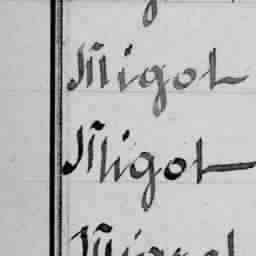 Migot
Migot